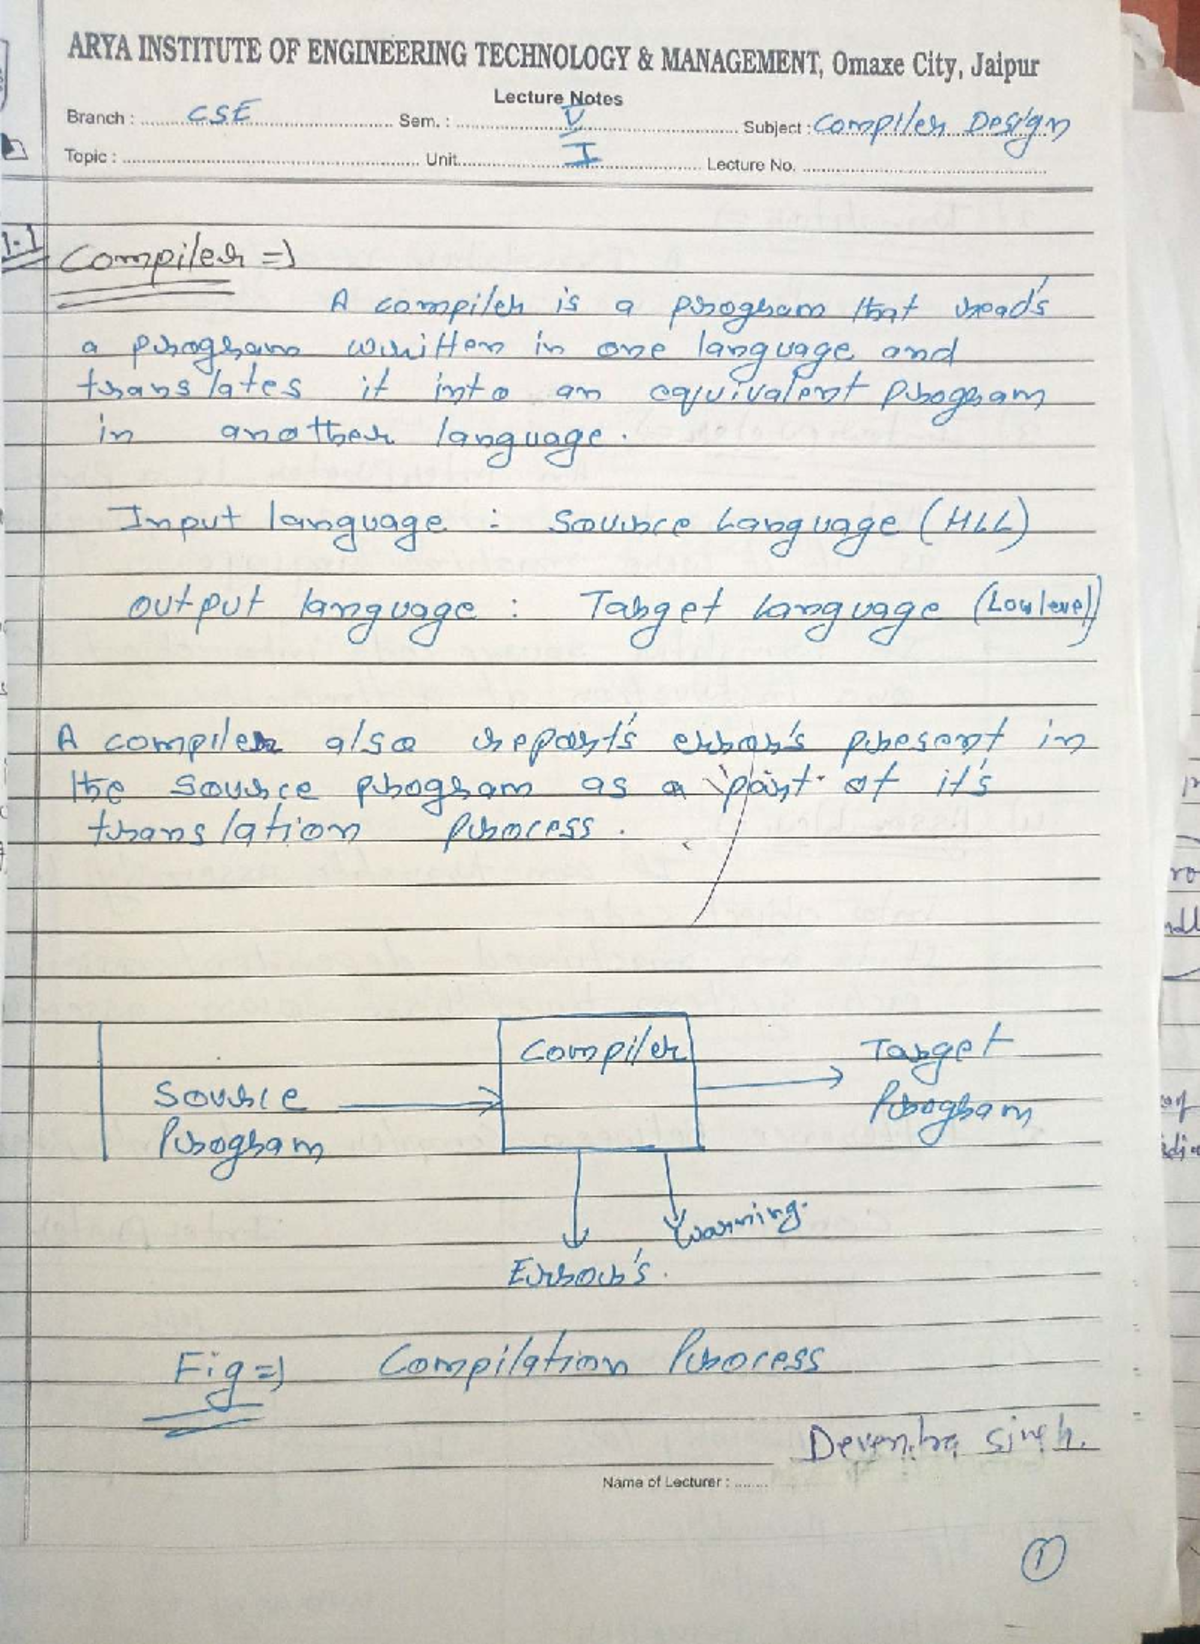 ARYA INSTITUTE OF ENGINEERING TECHNOLOGY & MANAGEMENT, Omaxe City, Jaipur
Lecture Notes
Branch : CSE Sem. : V Subject : Compiler Design
Topic : Unit. I Lecture No.
1.1 Compiler =>
A compiler is a program that read's
a program written in one language and
translates it into an equivalent program
in another language.
Input language : Source Language (HLL)
output language : Target Language (Low level)
A compiler also report's error's present in
the source program as a part of it's
translation process.
Source Program
Compiler
Target Program
Error's.
Warning.
Fig => Compilation Process
Devendra Singh.
Name of Lecturer :
1